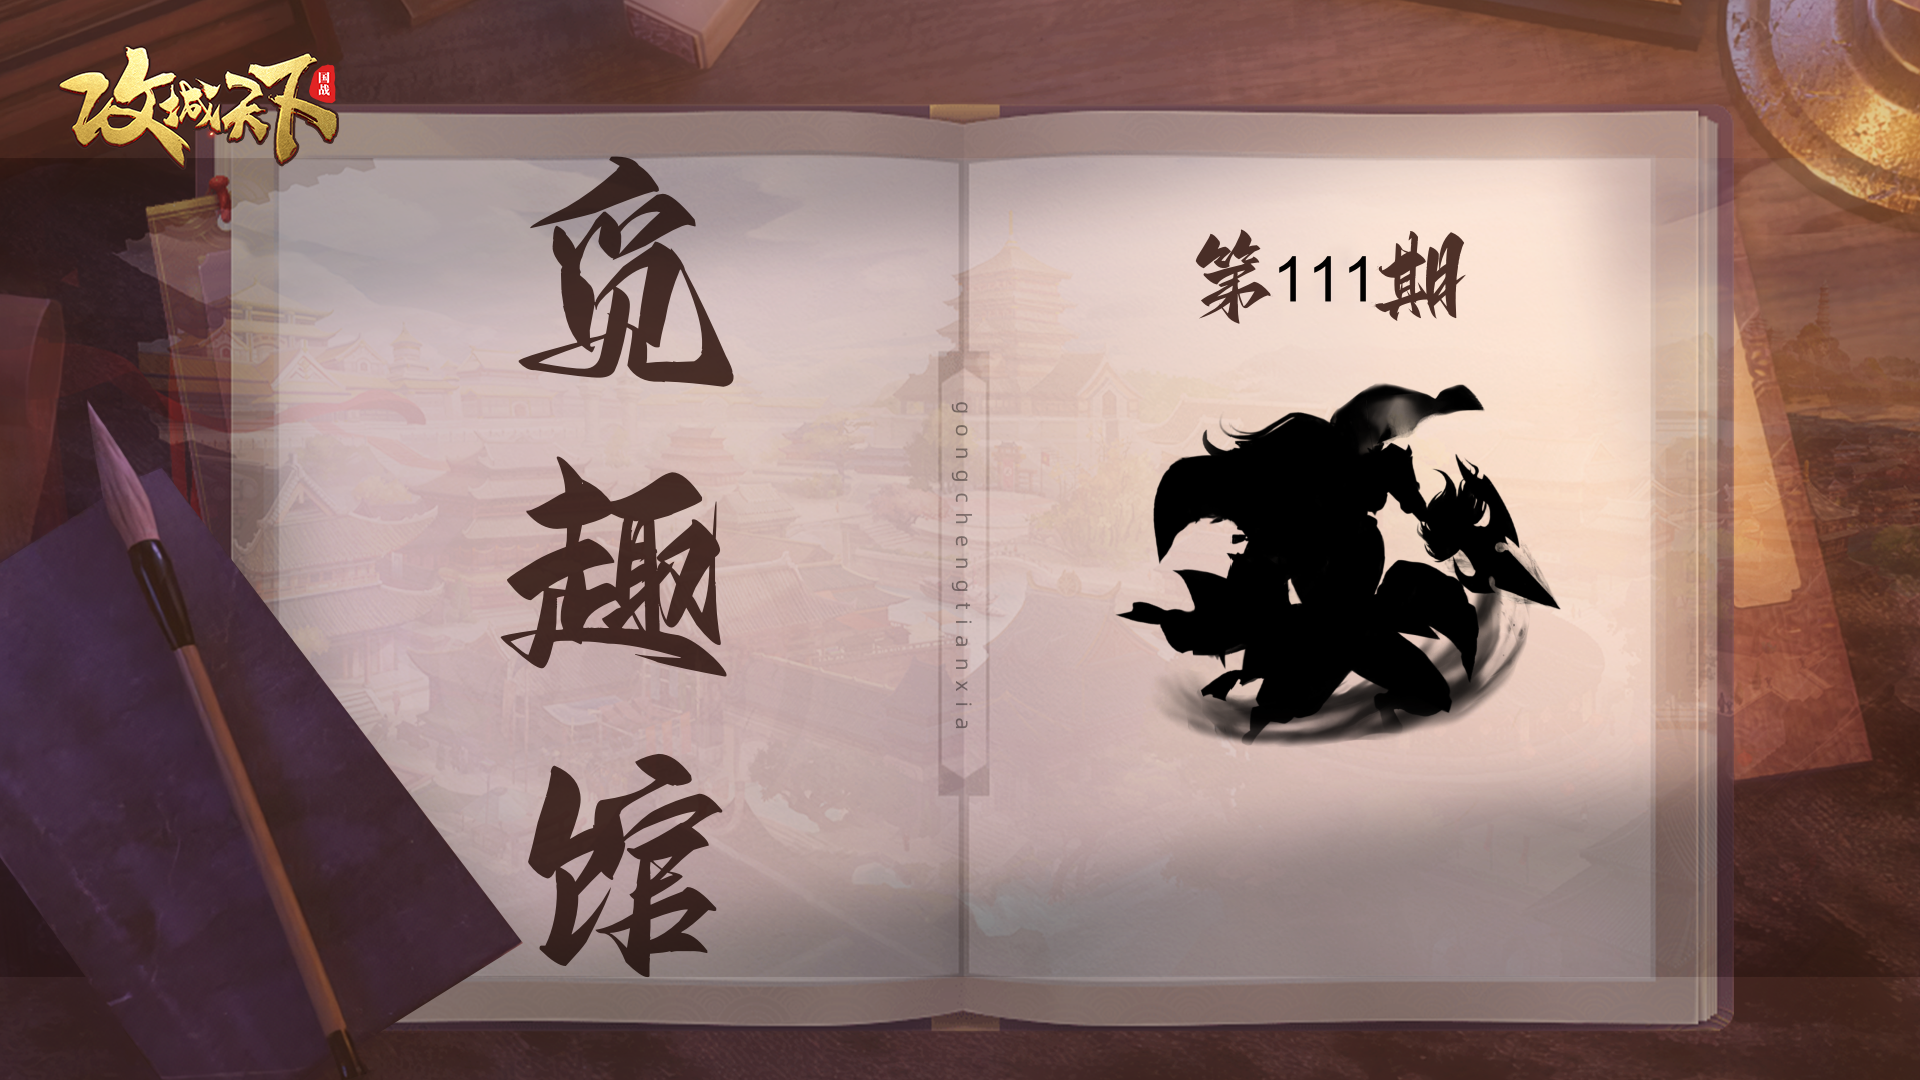 攻城天下
国战
觅趣馆
gongchengtianxia
第111期